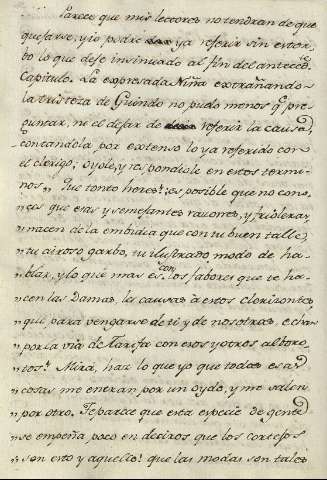 Parece que mis lectores no tendran de que
quejarse, y io podre ya referir sin estor-
bo lo que dejè insinuado al fin del anteced.te
Capitulo. La expresada Niña extrañando
la tristeza de Guindo no pudo menos q.e pre-
guntar, ni el dejar de referir la causa,
contandola por extenso lo ya referido con
el clerigo; oyole, y respondiole en estos termi-
nos „ Que tonto heres! ¿es posible que no cono-
„ ces que esas y semejantes razones, y frioleras
„ nacen de la embidia que con tu buen talle,
„ tu airoso garbo, tu ilustrado modo de ha-
„ blar, y lo que mas es con los fabores que te ha-
„ cen las Damas, les causas à estos clerizontes,
„ que para vengarse de ti y de nosotras, echan
„ por la via de Tarifa con esos y otros alboro-
„ tos? Mira, haz lo que yo que todas esas
„ cosas me entran por un oydo, y me salen
„ por otro. Te parece que esta especie de gente
„ se empeña poco en deciros que los cortejos
„ son esto y aquello? que las modas son tales